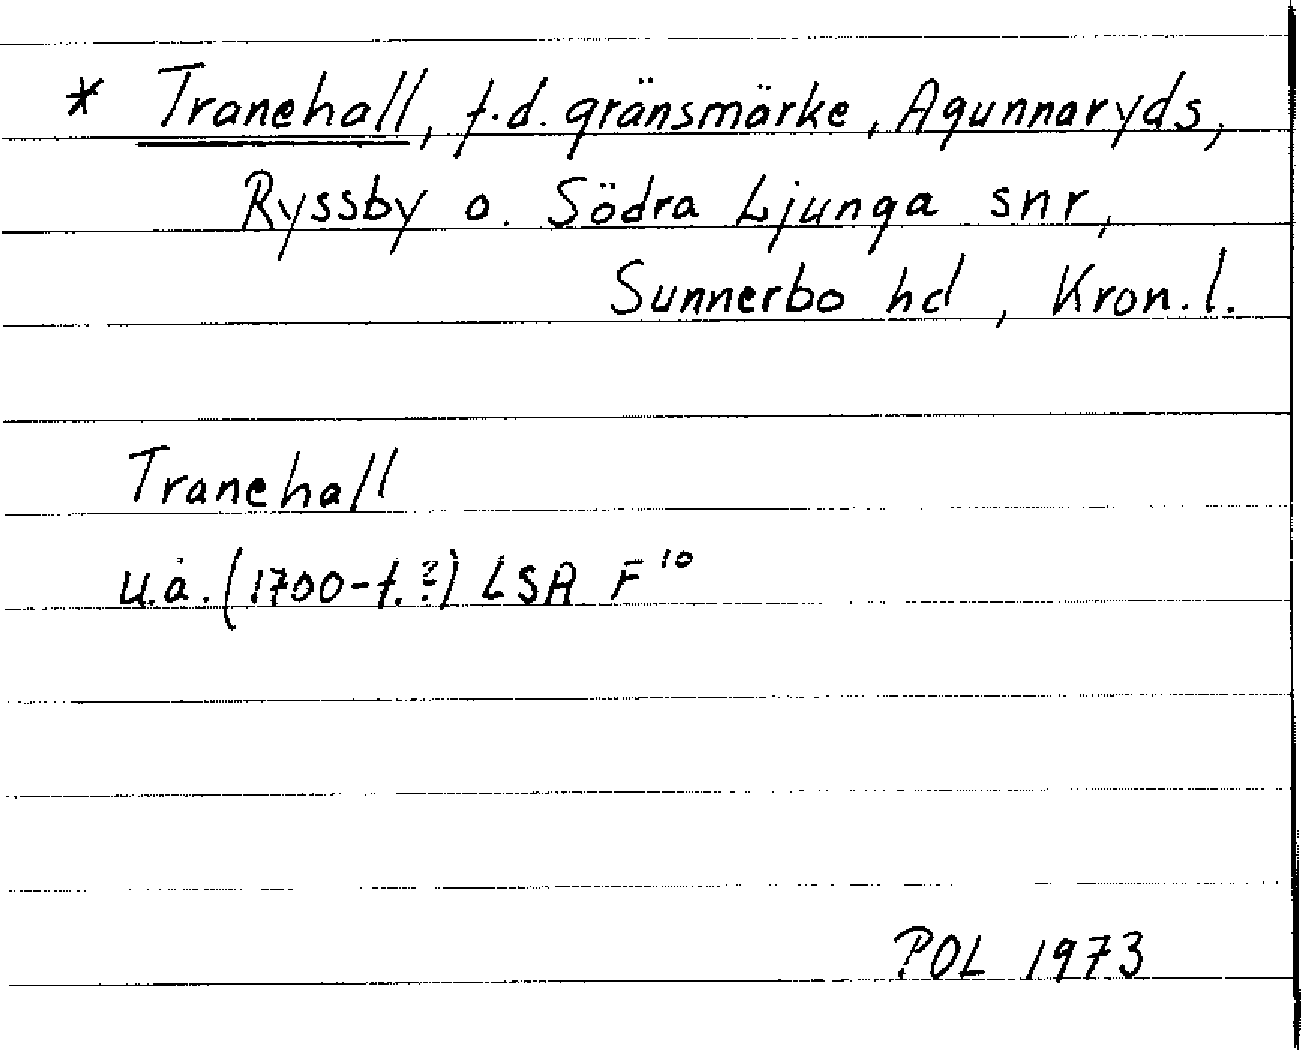 * Tranehall, f.d. gränsmärke, Agunnaryds,
Ryssby o. Södra Ljunga snr,
Sunnerbo hd, Kron. l.
Tranehall
u.å. (1700-t.?) LSA F¹⁰
POL 1973